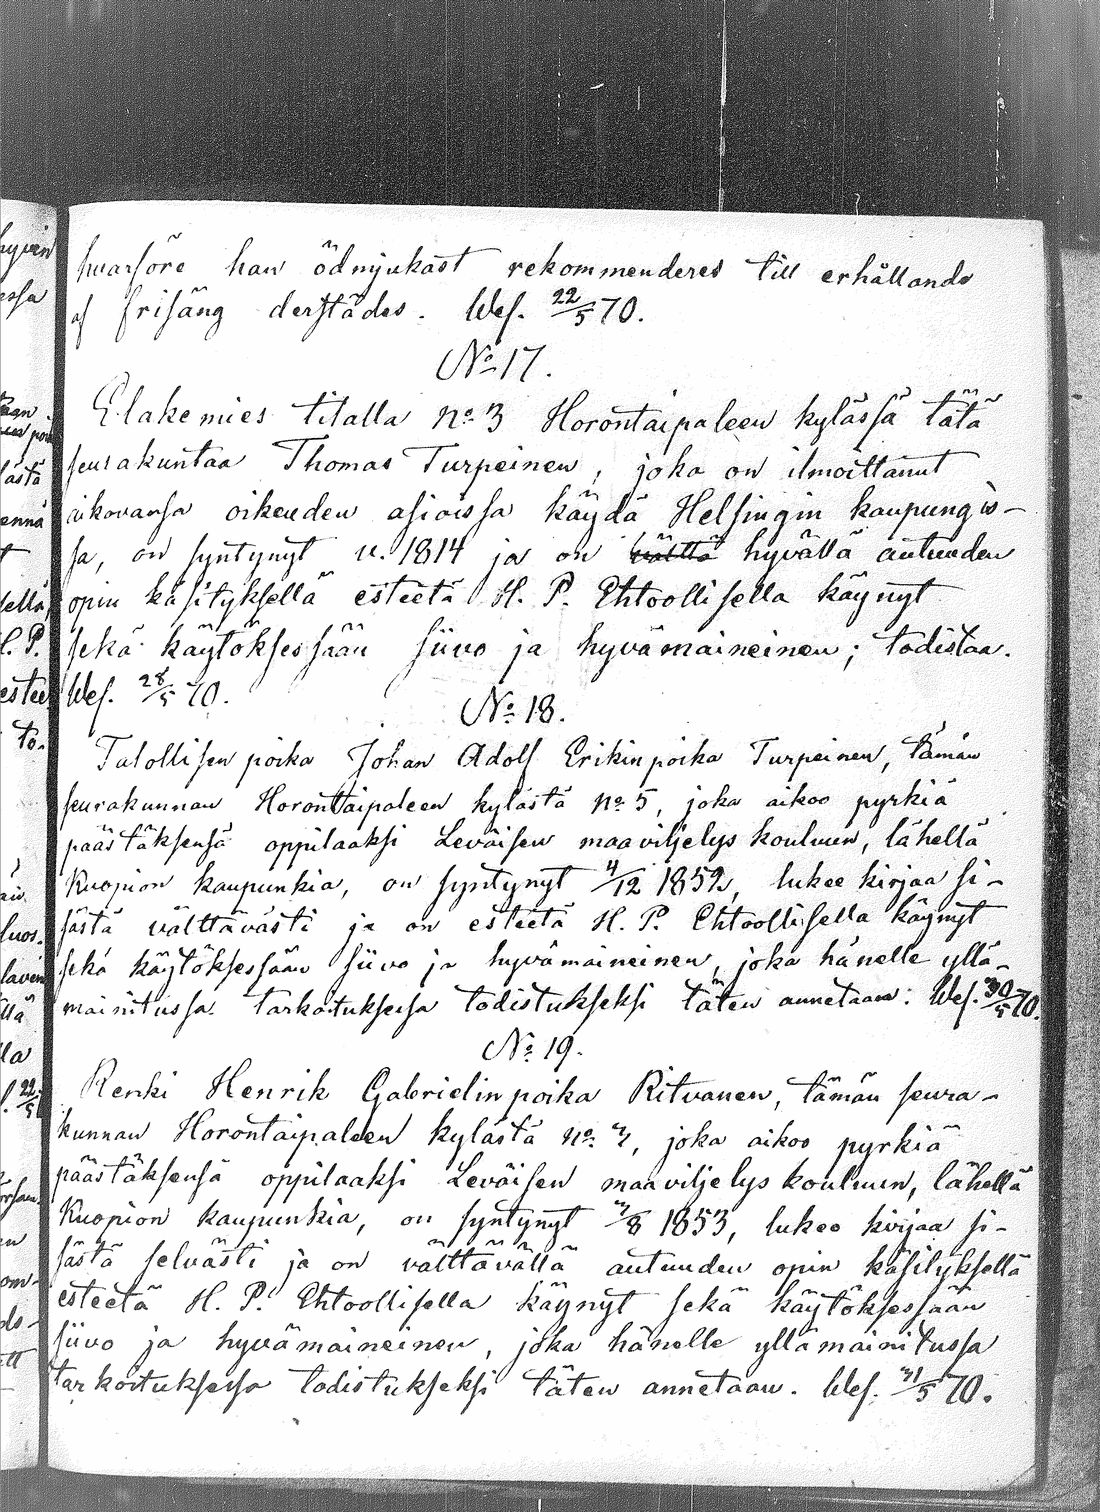 hvarföre han ödmjukast rekommenderes till erhållande
af frisäng derstädes. Wes. 22/5 70.
No 17.
Elakemies tilalla no 3 Horontaipaleen kylässä tätä
seurakuntaa Thomas Turpeinen, joka on ilmoittanut
aikovansa oikeuden asioissa käydä Helsingin kaupungis-
sa, on syntynyt v. 1814 ja on hyvällä autuuden
opin käsityksellä esteetä H. P. Ehtoollisella käynyt
sekä käytöksessään siivo ja hyvämaineinen; todistaa.
Wes. 28/5 70.
No 18.
Talollisen poika Johan Adolf Erikinpoika Turpeinen, tämän
seurakunnan Horontaipaleen kylästä no 5, joka aikoo pyrkiä
päästäksensä oppilaaksi Leväisen maaviljelys kouluun, lähellä
Kuopion kaupunkia, on syntynyt 4/12 1852, lukee kirjaa si-
sästä välttävästi ja on esteetä H. P. Ehtoollisella käynyt
sekä käytöksessään siivo ja hyvämaineinen, joka hänelle yllä-
mainitussa tarkotuksessa todistukseksi täten annetaan. Wes. 30/5 70.
No 19.
Renki Henrik Gabrielinpoika Ritvanen, tämän seura-
kunnan Horontaipaleen kylästä no 7, joka aikoo pyrkiä
päästäksensä oppilaaksi Leväisen maaviljelys kouluun, lähellä
Kuopion kaupunkia, on syntynyt 7/8 1853, lukee kirjaa si-
sästä selvästi ja on välttävällä autuuden opin käsityksellä
esteetä H. P. Ehtoollisella käynyt sekä käytöksessään
siivo ja hyvämaineinen, joka hänelle yllämainitussa
tarkoituksessa todistukseksi täten annetaan. Wes. 31/5 70.